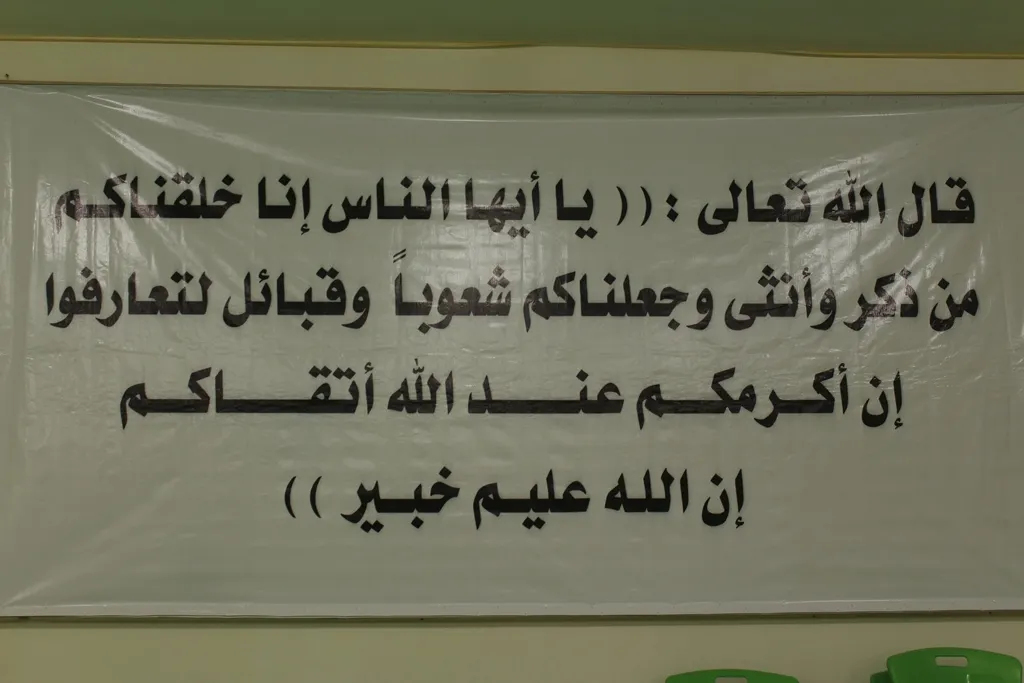 قال الله تعالى : (( يا أيها الناس إنا خلقناكم
من ذكر وأنثى وجعلناكم شعوباً وقبائل لتعارفوا
إن أكرمكم عند الله أتقاكم
إن الله عليم خبير ))